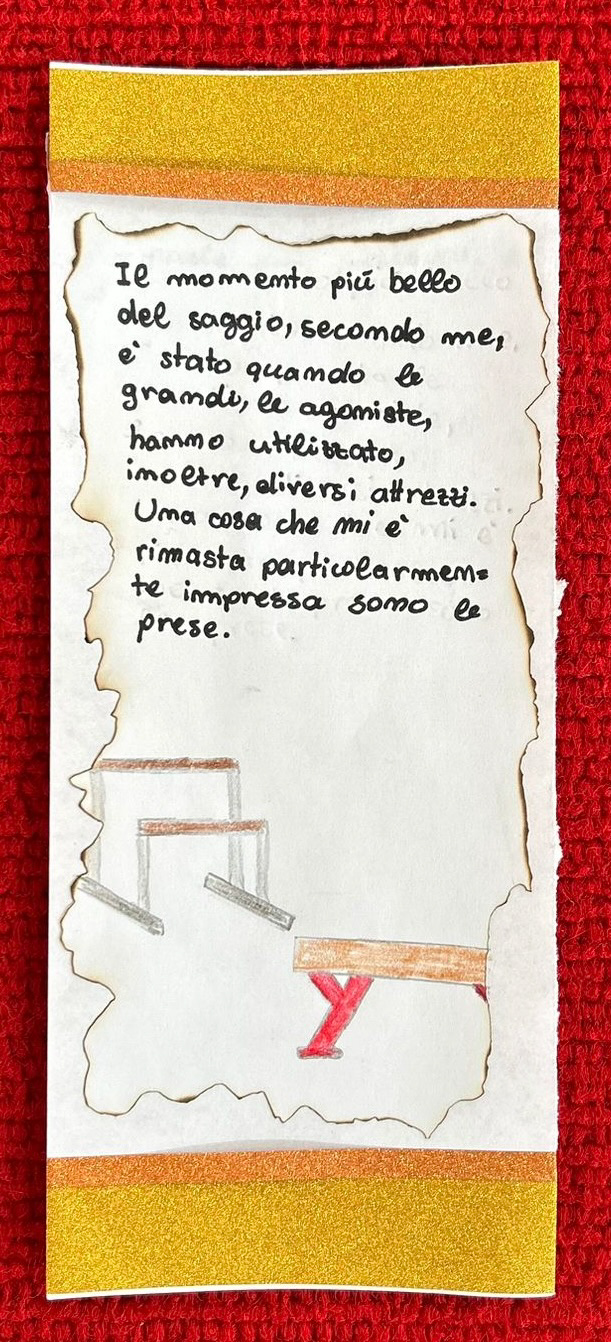 Il momento più bello
del saggio, secondo me,
e' stato quando le
grandi, le agoniste,
hanno utilizzato,
inoltre, diversi attrezzi.
Una cosa che mi e'
rimasta particolarmen=
te impressa sono le
prese.